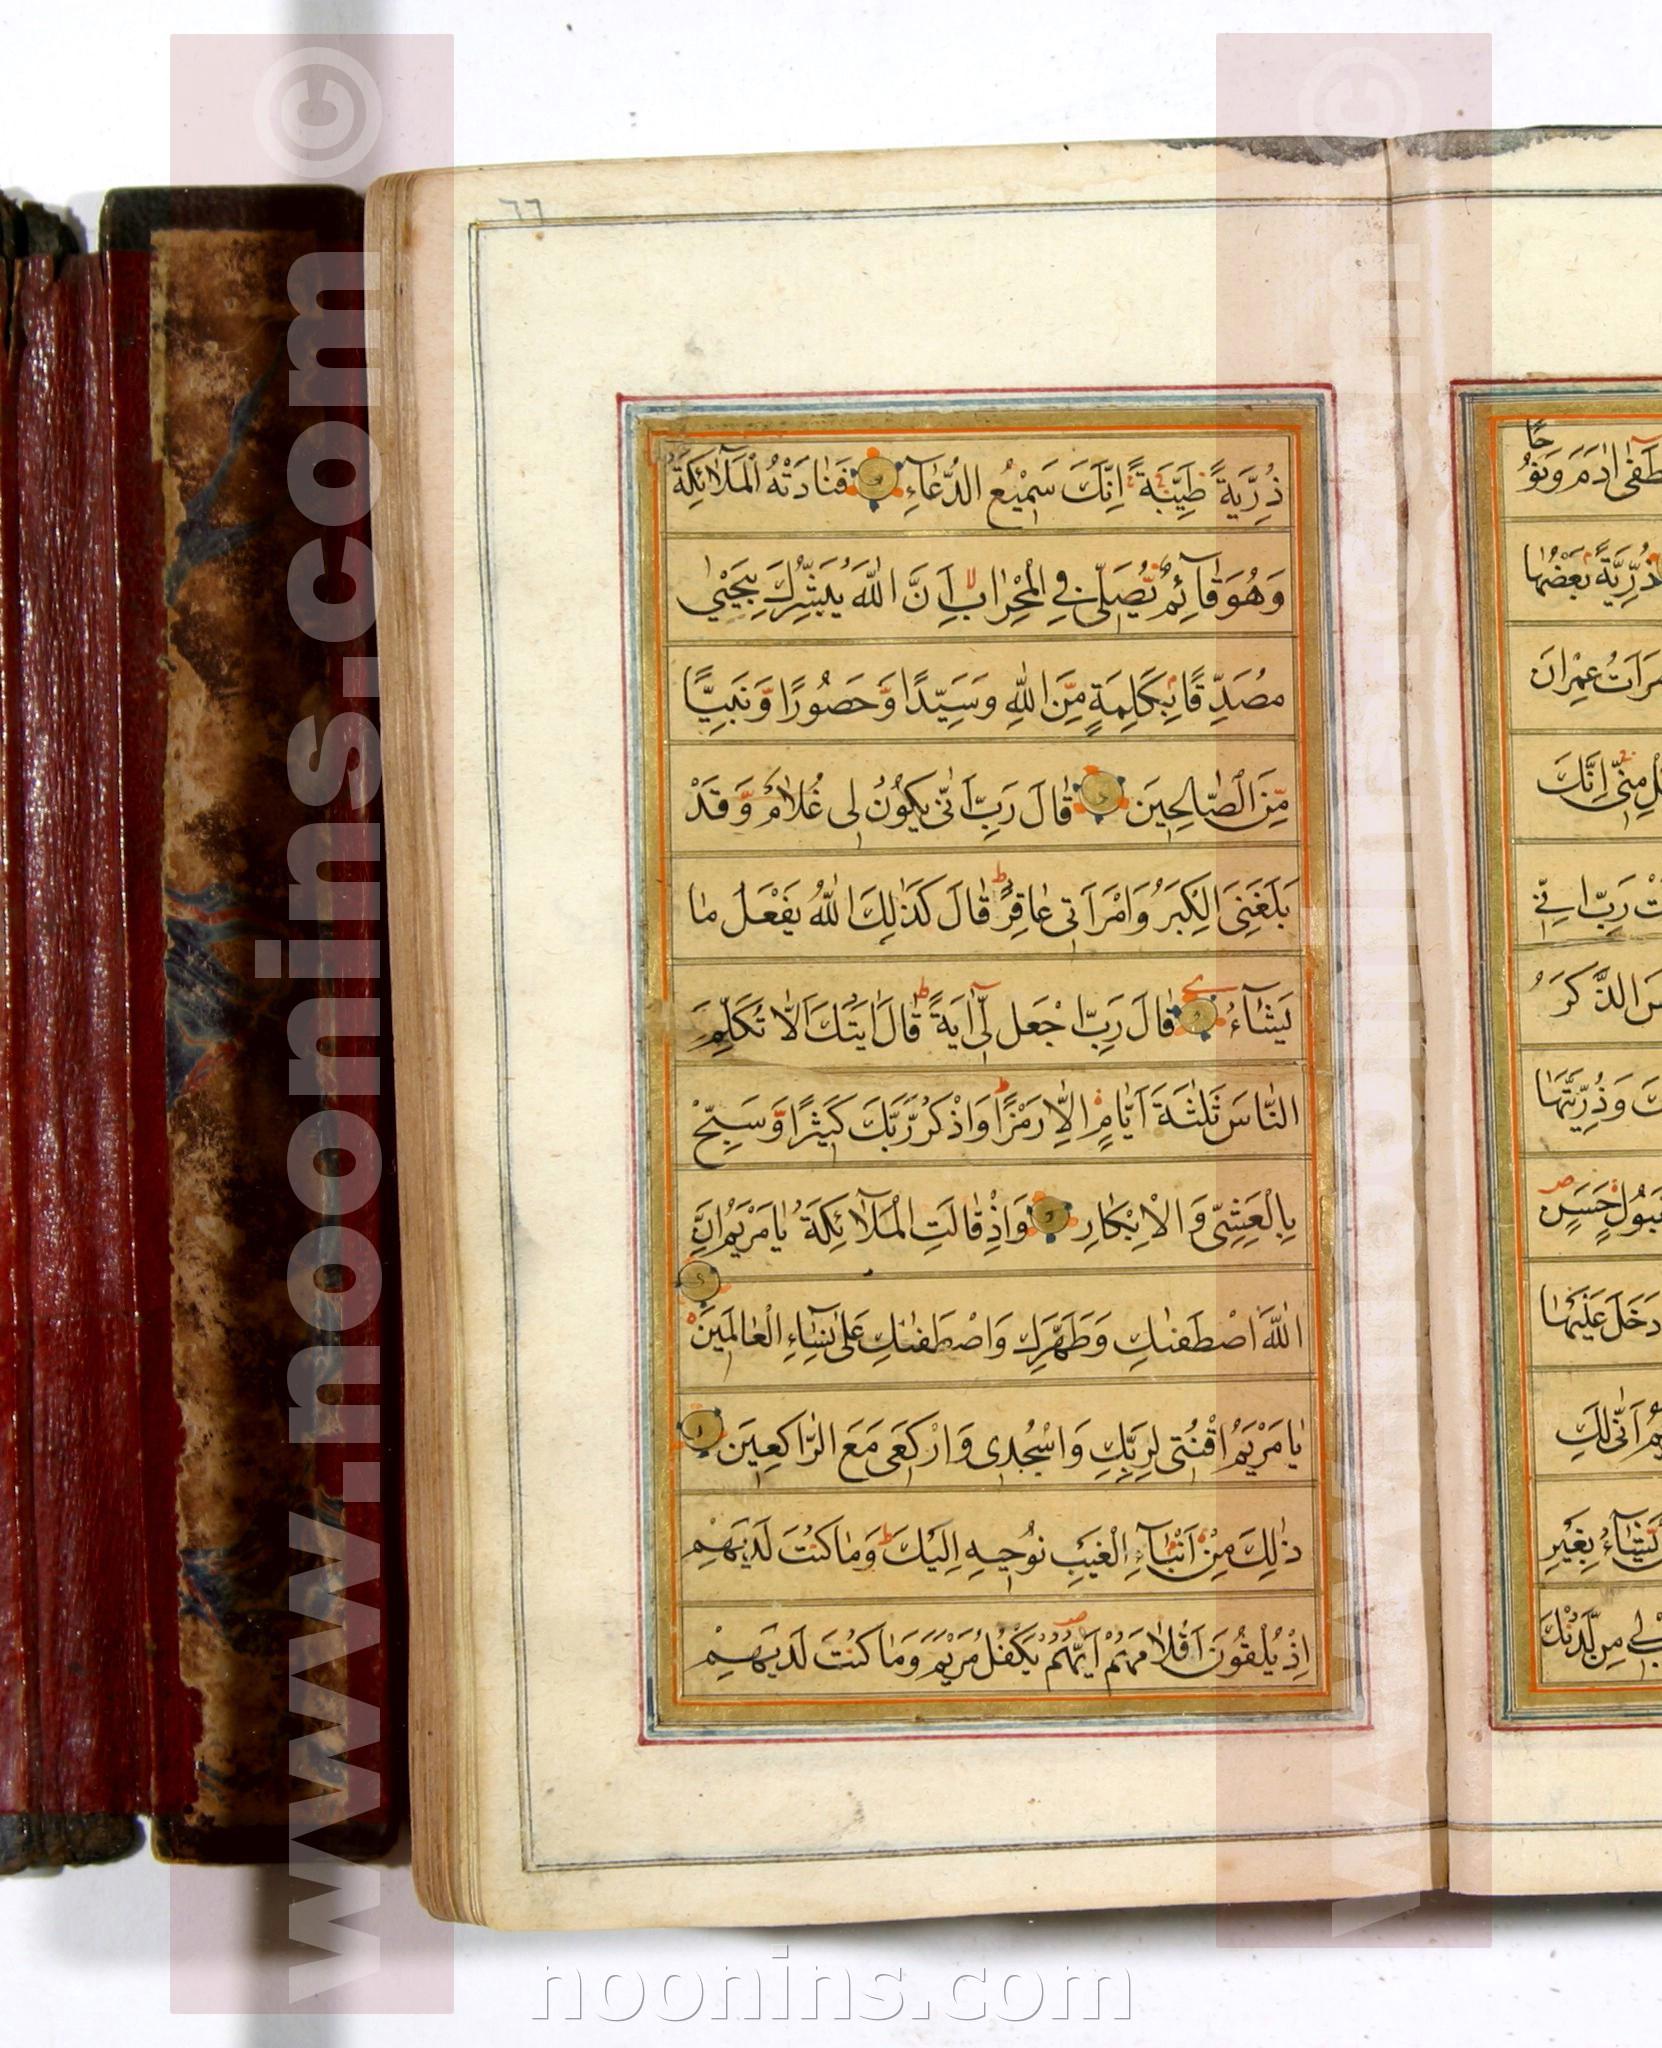 ٦٦
ذُرِّيَّةً طَيِّبَةً اِنَّكَ سَمِيْعُ الدُّعَآءِ فَنَادَتْهُ الْمَلَآئِكَةُ
وَهُوَ قَآئِمٌ يُّصَلِّى فِى الْمِحْرَابِ اَنَّ اللّٰهَ يُبَشِّرُكَ بِيَحْيٰى
مُصَدِّقًا بِكَلِمَةٍ مِّنَ اللّٰهِ وَسَيِّدًا وَّحَصُورًا وَّنَبِيًّا
مِّنَ الصَّالِحِينَ قَالَ رَبِّ اَنّٰى يَكُوْنُ لِى غُلَامٌ وَّقَدْ
بَلَغَنِىَ الْكِبَرُ وَامْرَاَتِى عَاقِرٌ قَالَ كَذٰلِكَ اللّٰهُ يَفْعَلُ مَا
يَشَآءُ قَالَ رَبِّ اجْعَل لِّى اٰيَةً قَالَ اٰيَتُكَ اَلَّا تُكَلِّمَ
النَّاسَ ثَلٰثَةَ اَيَّامٍ اِلَّا رَمْزًا وَاذْكُرْ رَّبَّكَ كَثِيرًا وَّسَبِّحْ
بِالْعَشِىِّ وَالْاِبْكَارِ وَاِذْ قَالَتِ الْمَلَآئِكَةُ يَامَرْيَمُ اِنَّ
اللّٰهَ اصْطَفٰىكِ وَطَهَّرَكِ وَاصْطَفٰىكِ عَلٰى نِسَآءِ الْعَالَمِينَ
يَامَرْيَمُ اقْنُتِى لِرَبِّكِ وَاسْجُدِى وَارْكَعِى مَعَ الرَّاكِعِينَ
ذٰلِكَ مِنْ اَنْبَآءِ الْغَيْبِ نُوحِيهِ اِلَيْكَ وَمَا كُنْتَ لَدَيْهِمْ
اِذْ يُلْقُونَ اَقْلَامَهُمْ اَيُّهُمْ يَكْفُلُ مَرْيَمَ وَمَا كُنْتَ لَدَيْهِمْ
اٰدَمَ وَنُو
حًا
ذُرِّيَّةً بَعْضُهَا
عِمْرَانَ
مِنِّى اِنَّكَ
رَبِّ اِنِّى
الذَّكَرُ
وَذُرِّيَّتَهَا
حَسَنٍ
دَخَلَ عَلَيْهَا
اَنّٰى لَكِ
يَشَآءُ بِغَيْرِ
لِى مِن لَّدُنْكَ
www.noonins.com ©
www.noonins.com ©
noonins.com